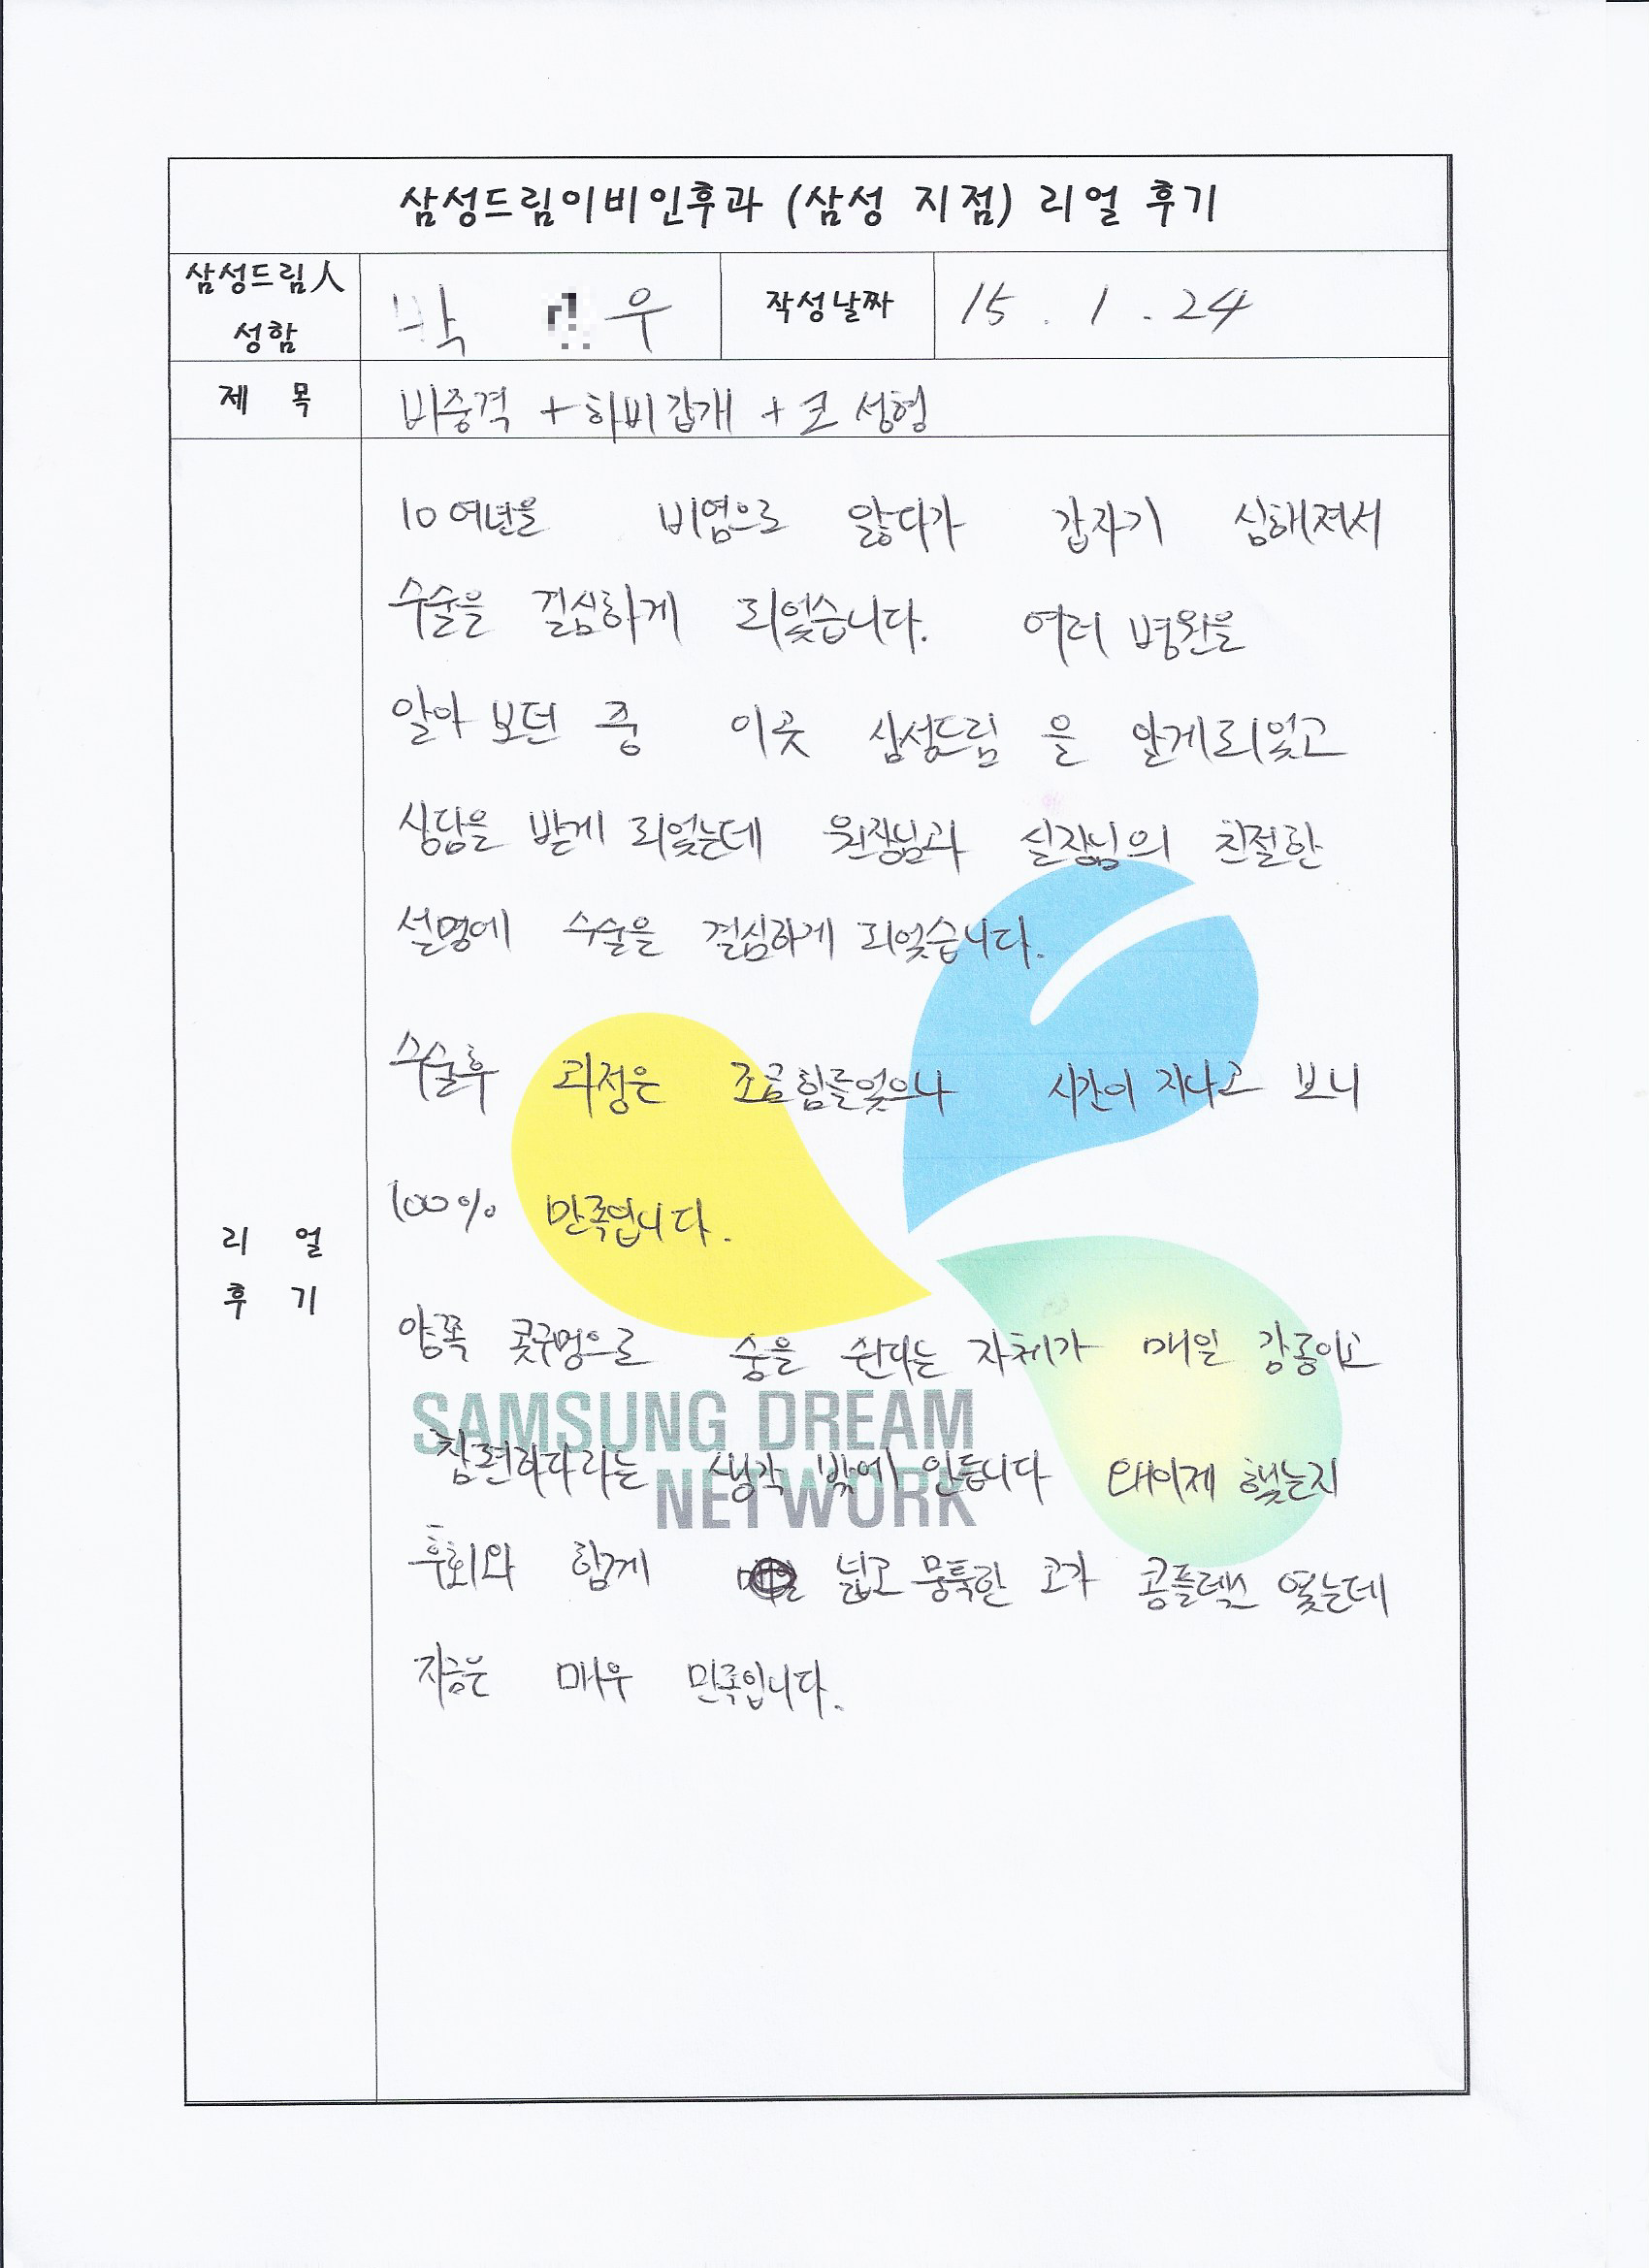 삼성드림이비인후과 (삼성 지점) 리얼 후기
삼성드림人 성함
박 우
작성날짜
15. 1. 24
제 목
비중격 + 하비갑개 + 코 성형
리 얼 후 기
10여년을 비염으로 앓다가 갑자기 심해져서
수술을 결심하게 되엇습니다. 여러 병원을
알아 보던 중 이곳 삼성드림 을 알게되잇고
상담을 받게 되엇는데 원장님과 실장님의 친절한
설명에 수술을 결심하게 되엇습니다.
수술후 과정은 조금힘들엇으나 시간이 지나고 보니
100% 만족입니다.
양쪽 콧구멍으로 숨을 쉰다는 자체가 매일 감동이고
참편하다라는 생각 밖에 안듭니다 왜이제 햇는지
후회와 함께 넓고 뭉툭한 코가 콤플렉스 엿는데
지금은 매우 만족입니다.
SAMSUNG DREAM
NETWORK